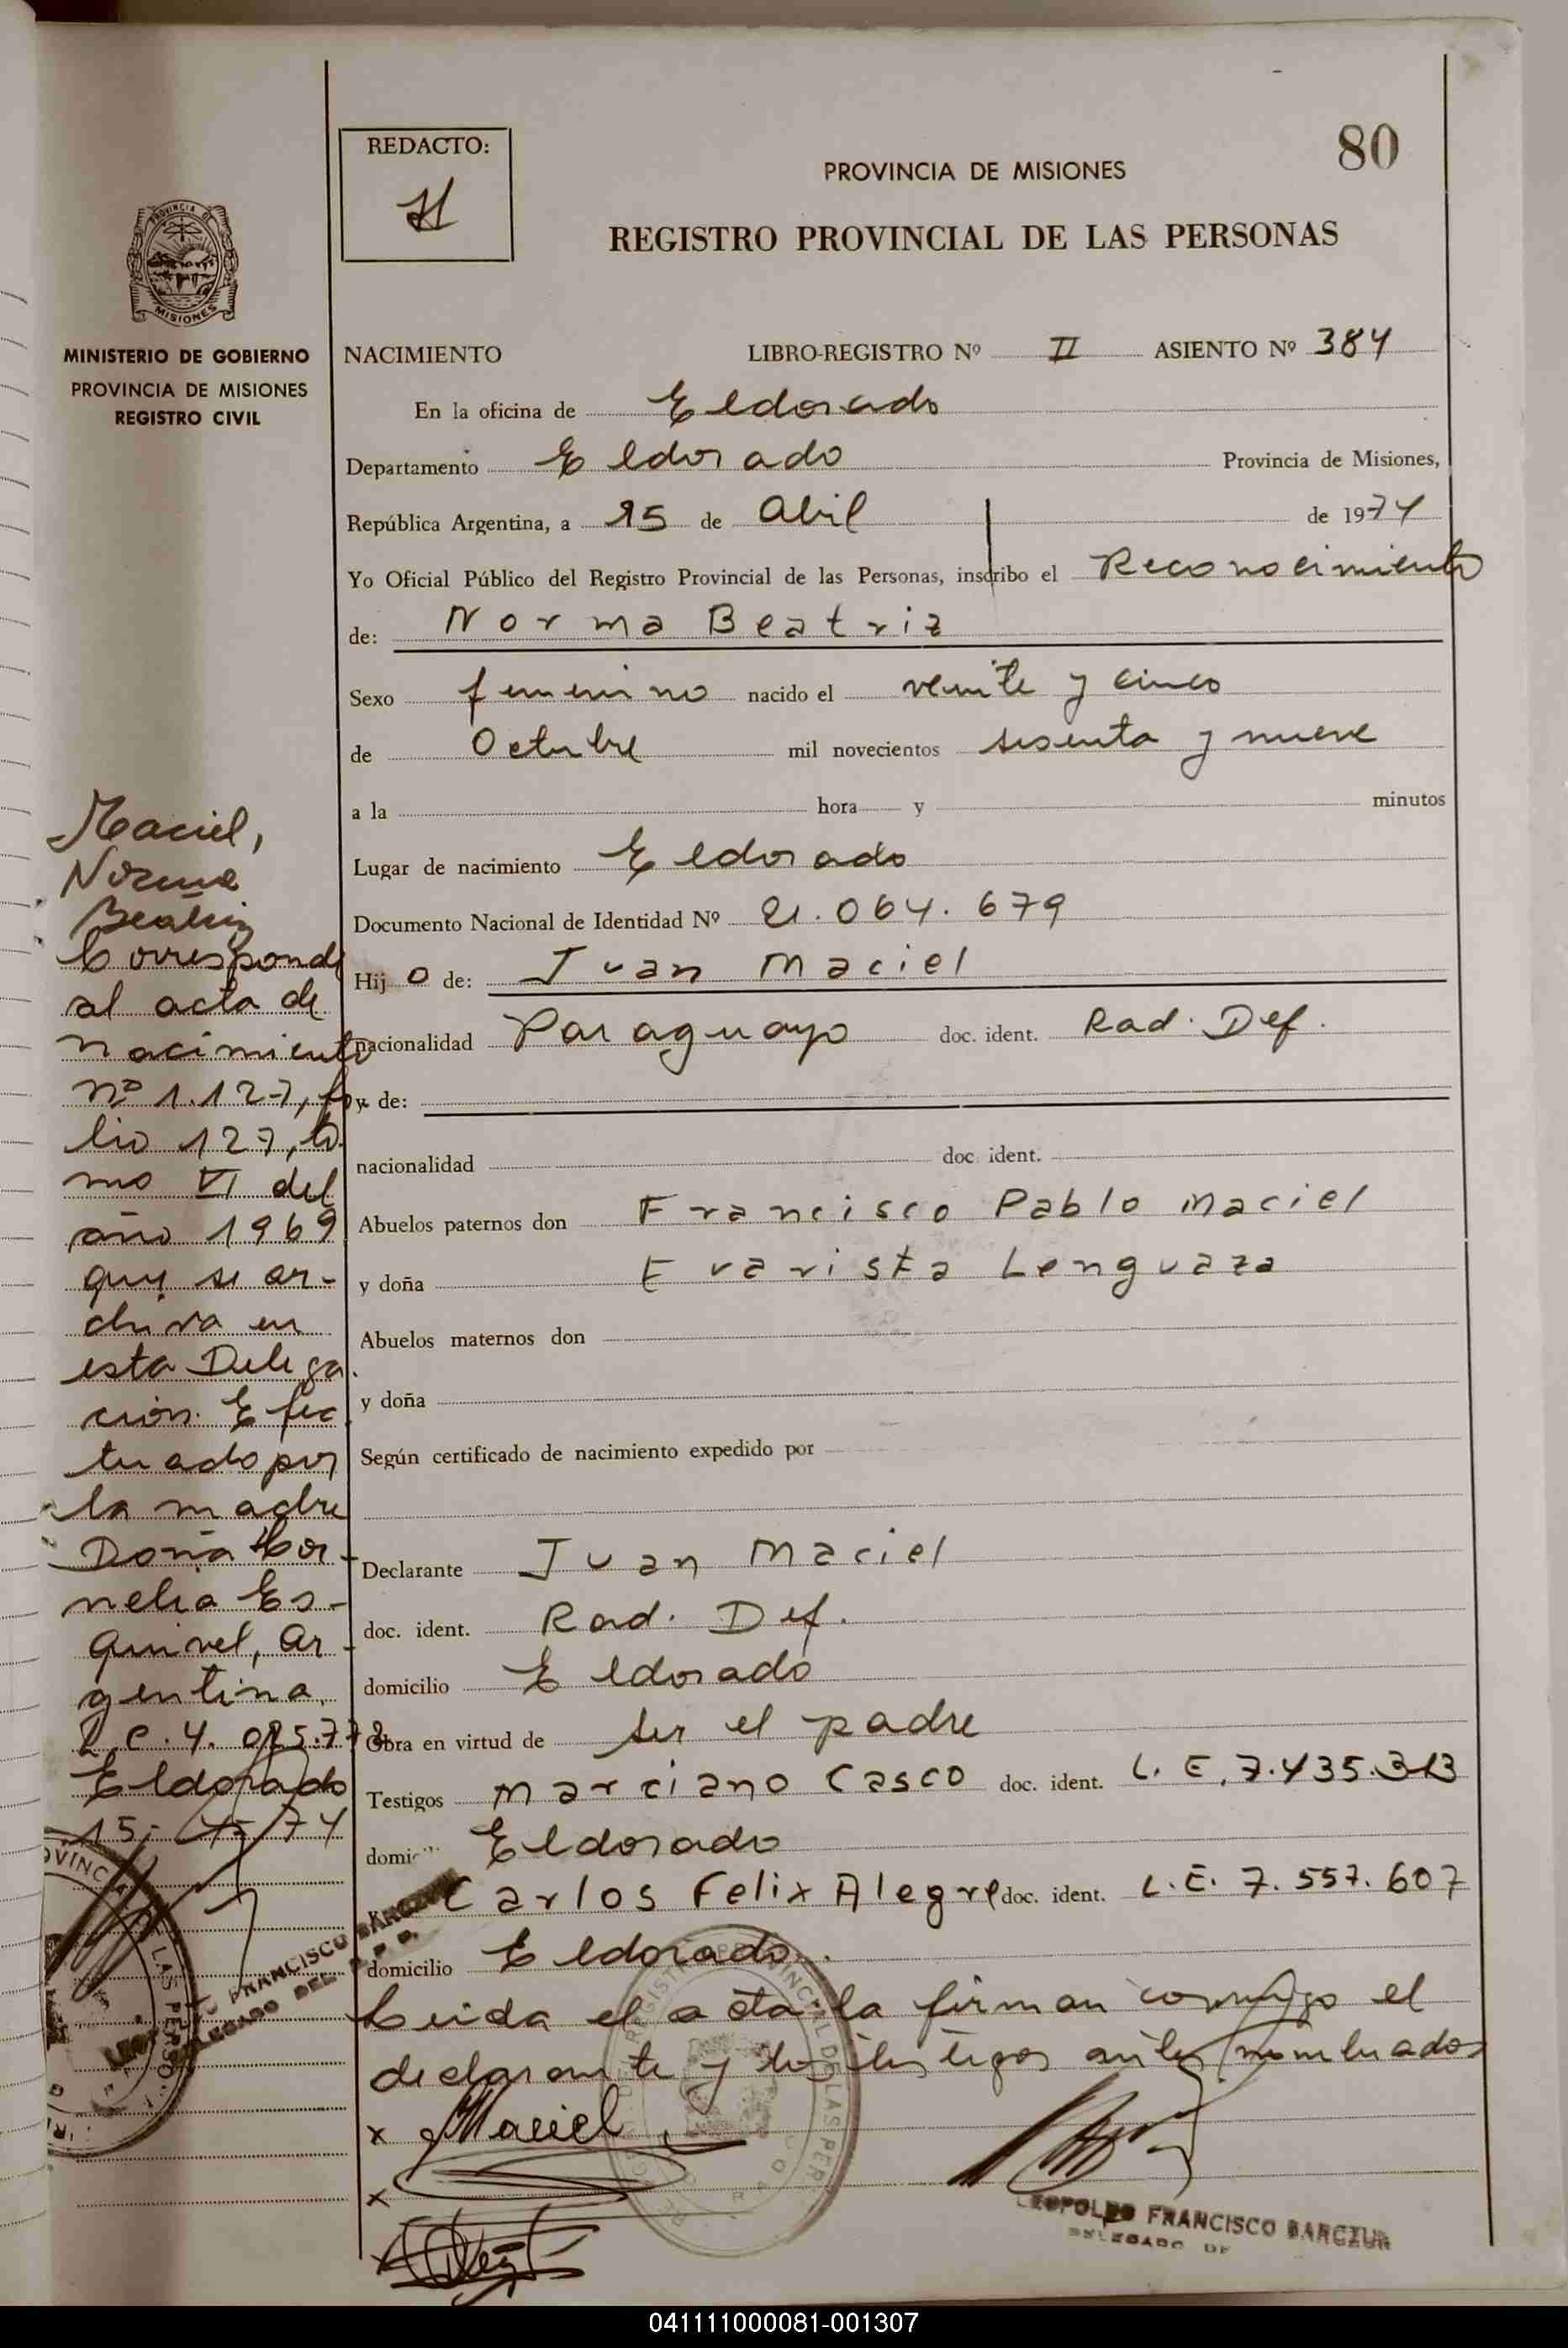 80
REDACTO:
PROVINCIA DE MISIONES
REGISTRO PROVINCIAL DE LAS PERSONAS
PROVINCIA DE
MISIONES
MINISTERIO DE GOBIERNO
PROVINCIA DE MISIONES
REGISTRO CIVIL
NACIMIENTO LIBRO-REGISTRO Nº II ASIENTO Nº 384
En la oficina de Eldorado
Departamento Eldorado Provincia de Misiones,
República Argentina, a 15 de Abril de 1974
Yo Oficial Público del Registro Provincial de las Personas, inscribo el Reconocimiento
de: Norma Beatriz
Sexo femenino nacido el veinte y cinco
de Octubre mil novecientos sesenta y nueve
a la hora y minutos
Lugar de nacimiento Eldorado
Documento Nacional de Identidad Nº 21.064.679
Hijo de: Juan Maciel
nacionalidad Paraguayo doc. ident. Rad. Def.
y de:
nacionalidad doc. ident.
Abuelos paternos don Francisco Pablo Maciel
y doña Evarista Lenguaza
Abuelos maternos don
y doña
Según certificado de nacimiento expedido por
Declarante Juan Maciel
doc. ident. Rad. Def.
domicilio Eldorado
Obra en virtud de ser el padre
Testigos Marciano Casco doc. ident. L. E. 7.435.313
domici Eldorado
Carlos Felix Alegre doc. ident. L.E. 7.557.607
domicilio Eldorado.
Leida el acta la firman conmigo el
declarante y los testigos antes nombrados
x Maciel
x
x
LEOPOLDO FRANCISCO BARCZUK
DELEGADO DE
Maciel,
Norma
Beatriz
Corresponde
al acta de
nacimiento
nº 1.127, fo
lio 127, to
mo VI del
año 1969
que se ar-
chiva en
esta Delega
ción. Efec
tuado por
la madre
Doña Cor-
nelia Es-
quivel, Ar-
gentina,
L.C. 4.
Eldorado
15-4-74
FRANCISCO BARCZUK
DELEGADO DEL R.P.P.
041111000081-001307